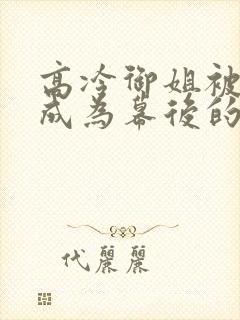 高冷御姐被
成為幕後的
代麗麗